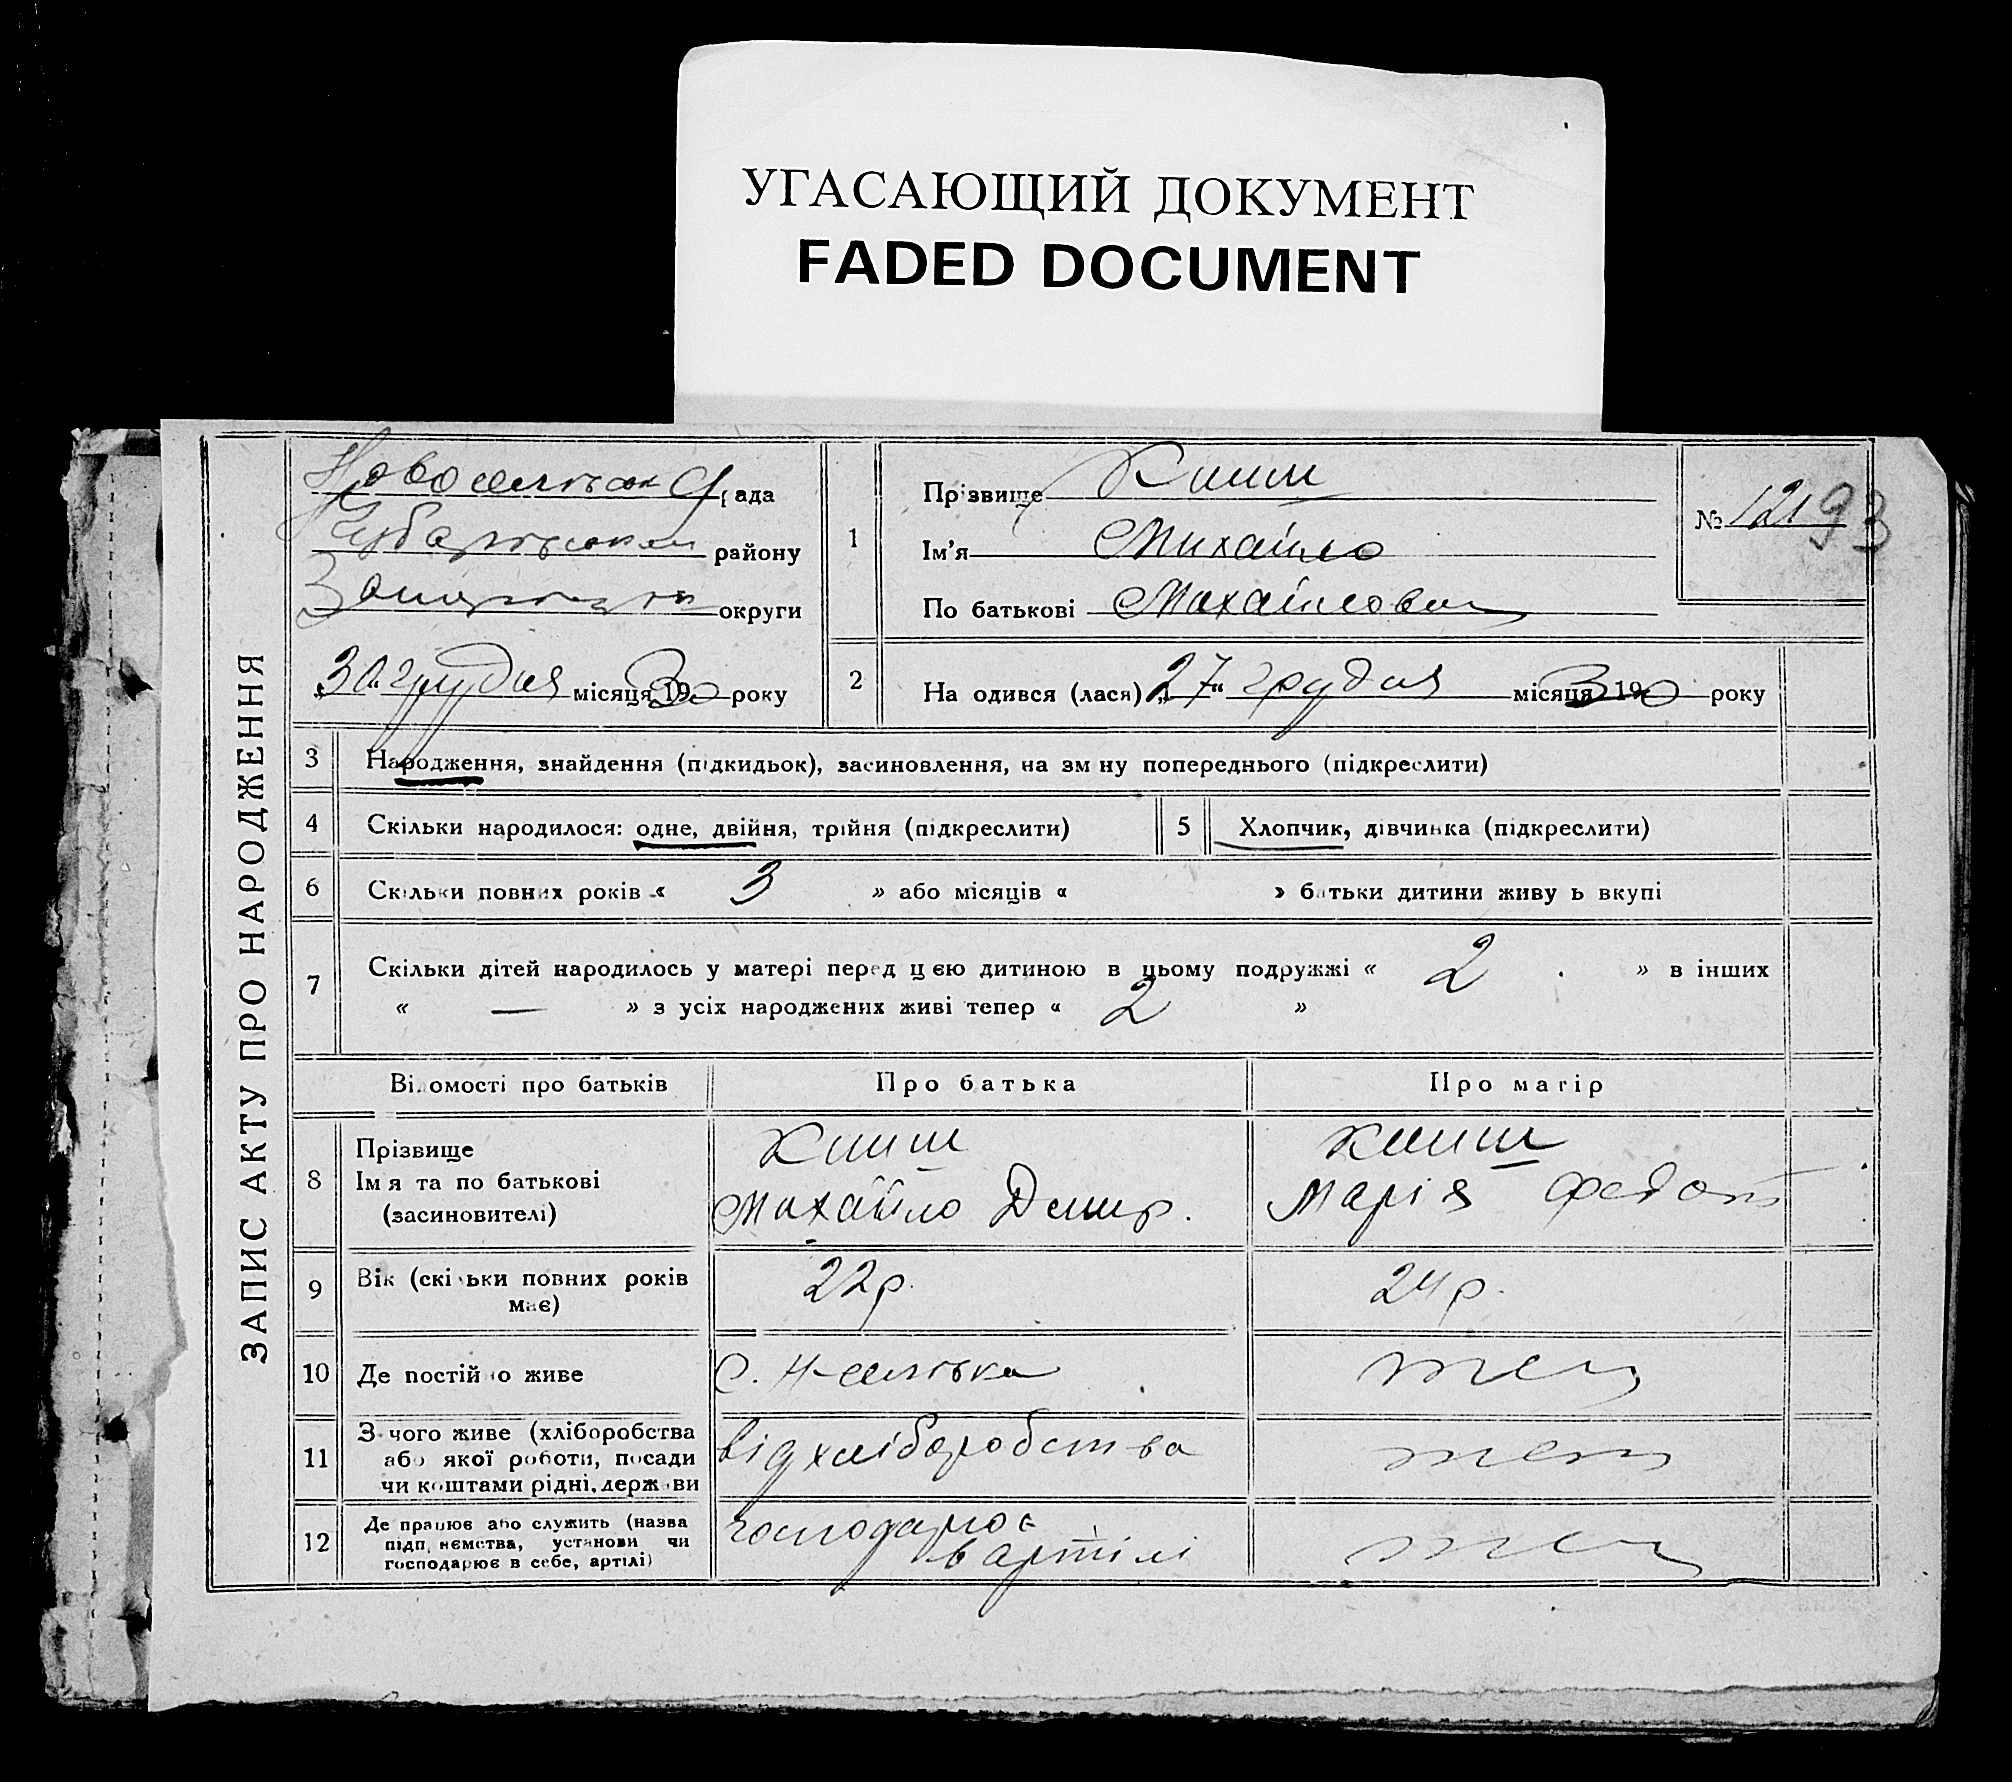 УГАСАЮЩИЙ ДОКУМЕНТ
FADED DOCUMENT
ЗАПИС АКТУ ПРО НАРОДЖЕННЯ
Новосельськ рада
Чубарівський району
округи
„30“ грудня місяця 1930 року
1
Прізвище Книш
Ім'я Михайло
По батькові Михайлович
№ 121 93
2
На одився (лася) „27“ грудня місяця 1930 року
3 Народження, знайдення (підкидьок), засиновлення, на зм ну попереднього (підкреслити)
4 Скільки народилося: одне, двійня, трійня (підкреслити)
5 Хлопчик, дівчинка (підкреслити)
6 Скільки повних років « 3 » або місяців « » батьки дитини живу ь вкупі
7 Скільки дітей народилось у матері перед цєю дитиною в цьому подружжі « 2 » в інших
« — » з усіх народжених живі тепер « 2 »
Відомості про батьків Про батька Про матір
8 Прізвище
Імя та по батькові
(засиновителі)
Книш
Михайло Демир.
Книш
Марія Федот
9 Вік (скільки повних років
має)
22 р.
24 р.
10 Де постійно живе
с. Н-селівка
теж
11 З чого живе (хліборобства
або якої роботи, посади
чи коштами рідні, держави
від хліборобства
теж
12 Де працює або служить (назва
підп, ємства, установи чи
господарює в себе, артілі)
господарює
в артілі
теж